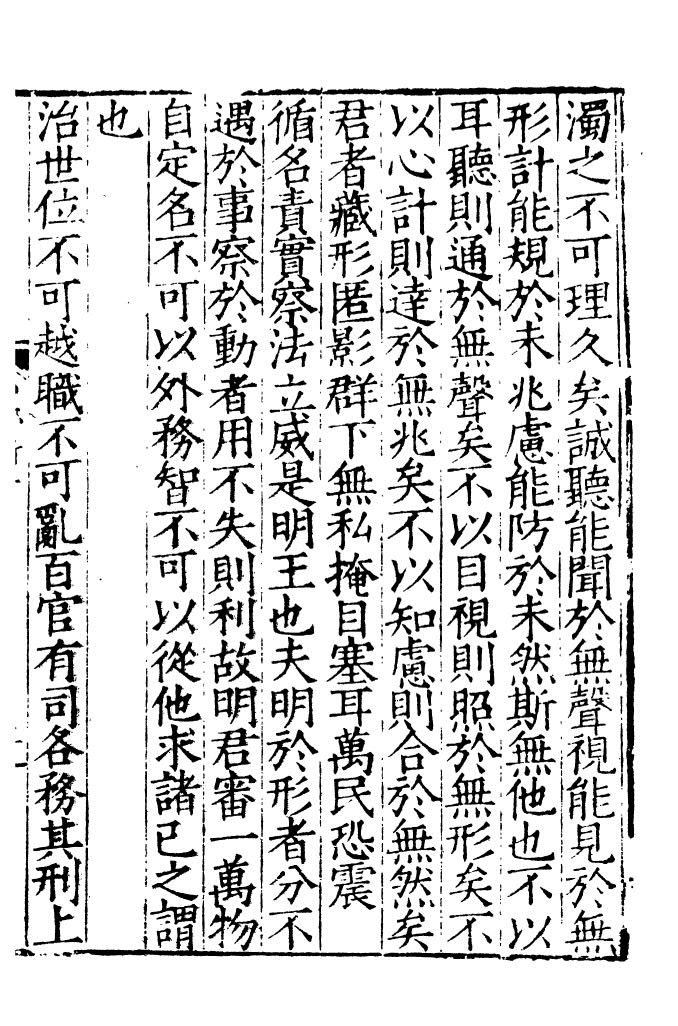 濁之不可理久矣誠聽能聞於無聲視能見於無
形計能規於未兆慮能防於未然斯無他也不以
耳聽則通於無聲矣不以目視則照於無形矣不
以心計則達於無兆矣不以知慮則合於無然矣
君者藏形匿影群下無私掩目塞耳萬民恐震
循名責實察法立威是明王也夫明於形者分不
遇於事察於動者用不失則利故明君審一萬物
自定名不可以外務智不可以從他求諸己之謂
也
治世位不可越職不可亂百官有司各務其刑上